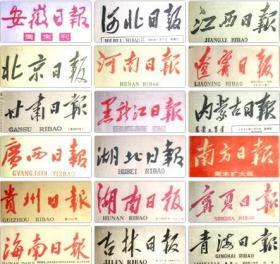 安徽日报
周末刊
河北日报
HEBEI RIBAO
江西日报
JIANGXI RIBAO
北京日报
河南日报
HENAN RIBAO
辽宁日报
LIAONING RIBAO
甘肃日报
GANSU RIBAO
黑龙江日报
内蒙古日报
广西日报
GUANGJSIH YIZBAU
湖北日报
HUBEI RIBAO
南方日报
周末扩大版
贵州日报
GUIZHOU RIBAO
湖南日报
HUNAN RIBAO
宁夏日报
NINGXIA RIBAO
海南日报
HAINAN RIBAO
吉林日报
JILIN RIBAO
青海日报
QINGHAI RIBAO